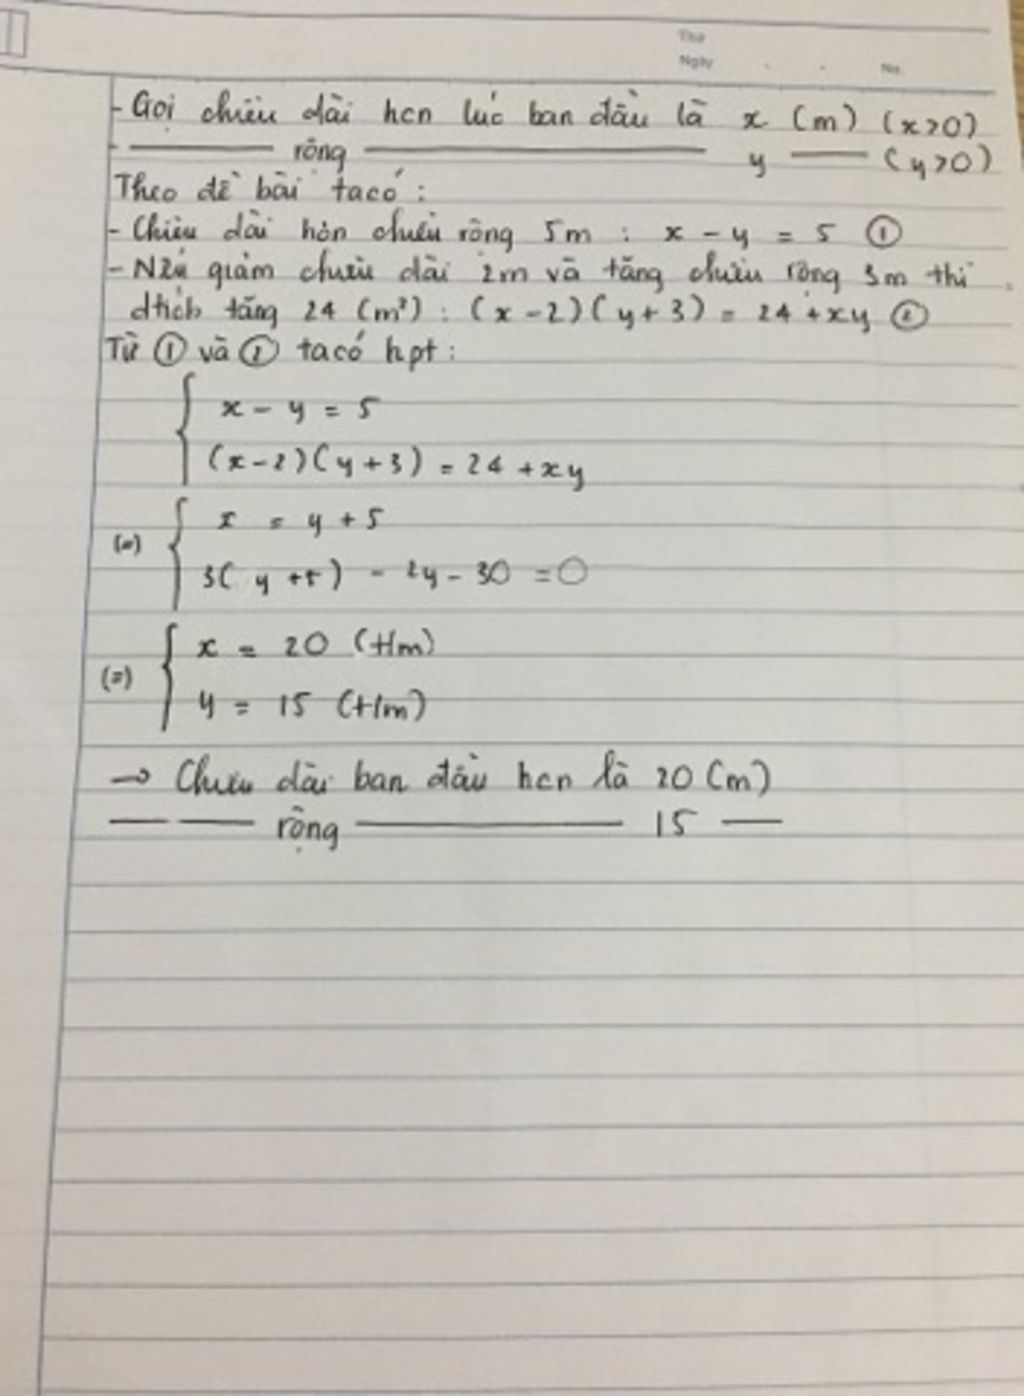 Thứ
Ngày . . No.
- Gọi chiều dài hcn lúc ban đầu là x (m) (x>0)
- —— rộng —— y —— (y>0)
Theo đề bài ta có :
- Chiều dài hơn chiều rộng 5m : x - y = 5 ①
- Nếu giảm chiều dài 2m và tăng chiều rộng 3m thì
dtích tăng 24 (m²) : (x-2)(y+3) = 24 + xy ②
Từ ① và ② ta có hpt :
x - y = 5
(x-2)(y+3) = 24 + xy
(=) x = y + 5
3(y+5) - 2y - 30 = 0
(=) x = 20 (t/m)
y = 15 (t/m)
→ Chiều dài ban đầu hcn là 20 (m)
—— —— rộng —— 15 ——